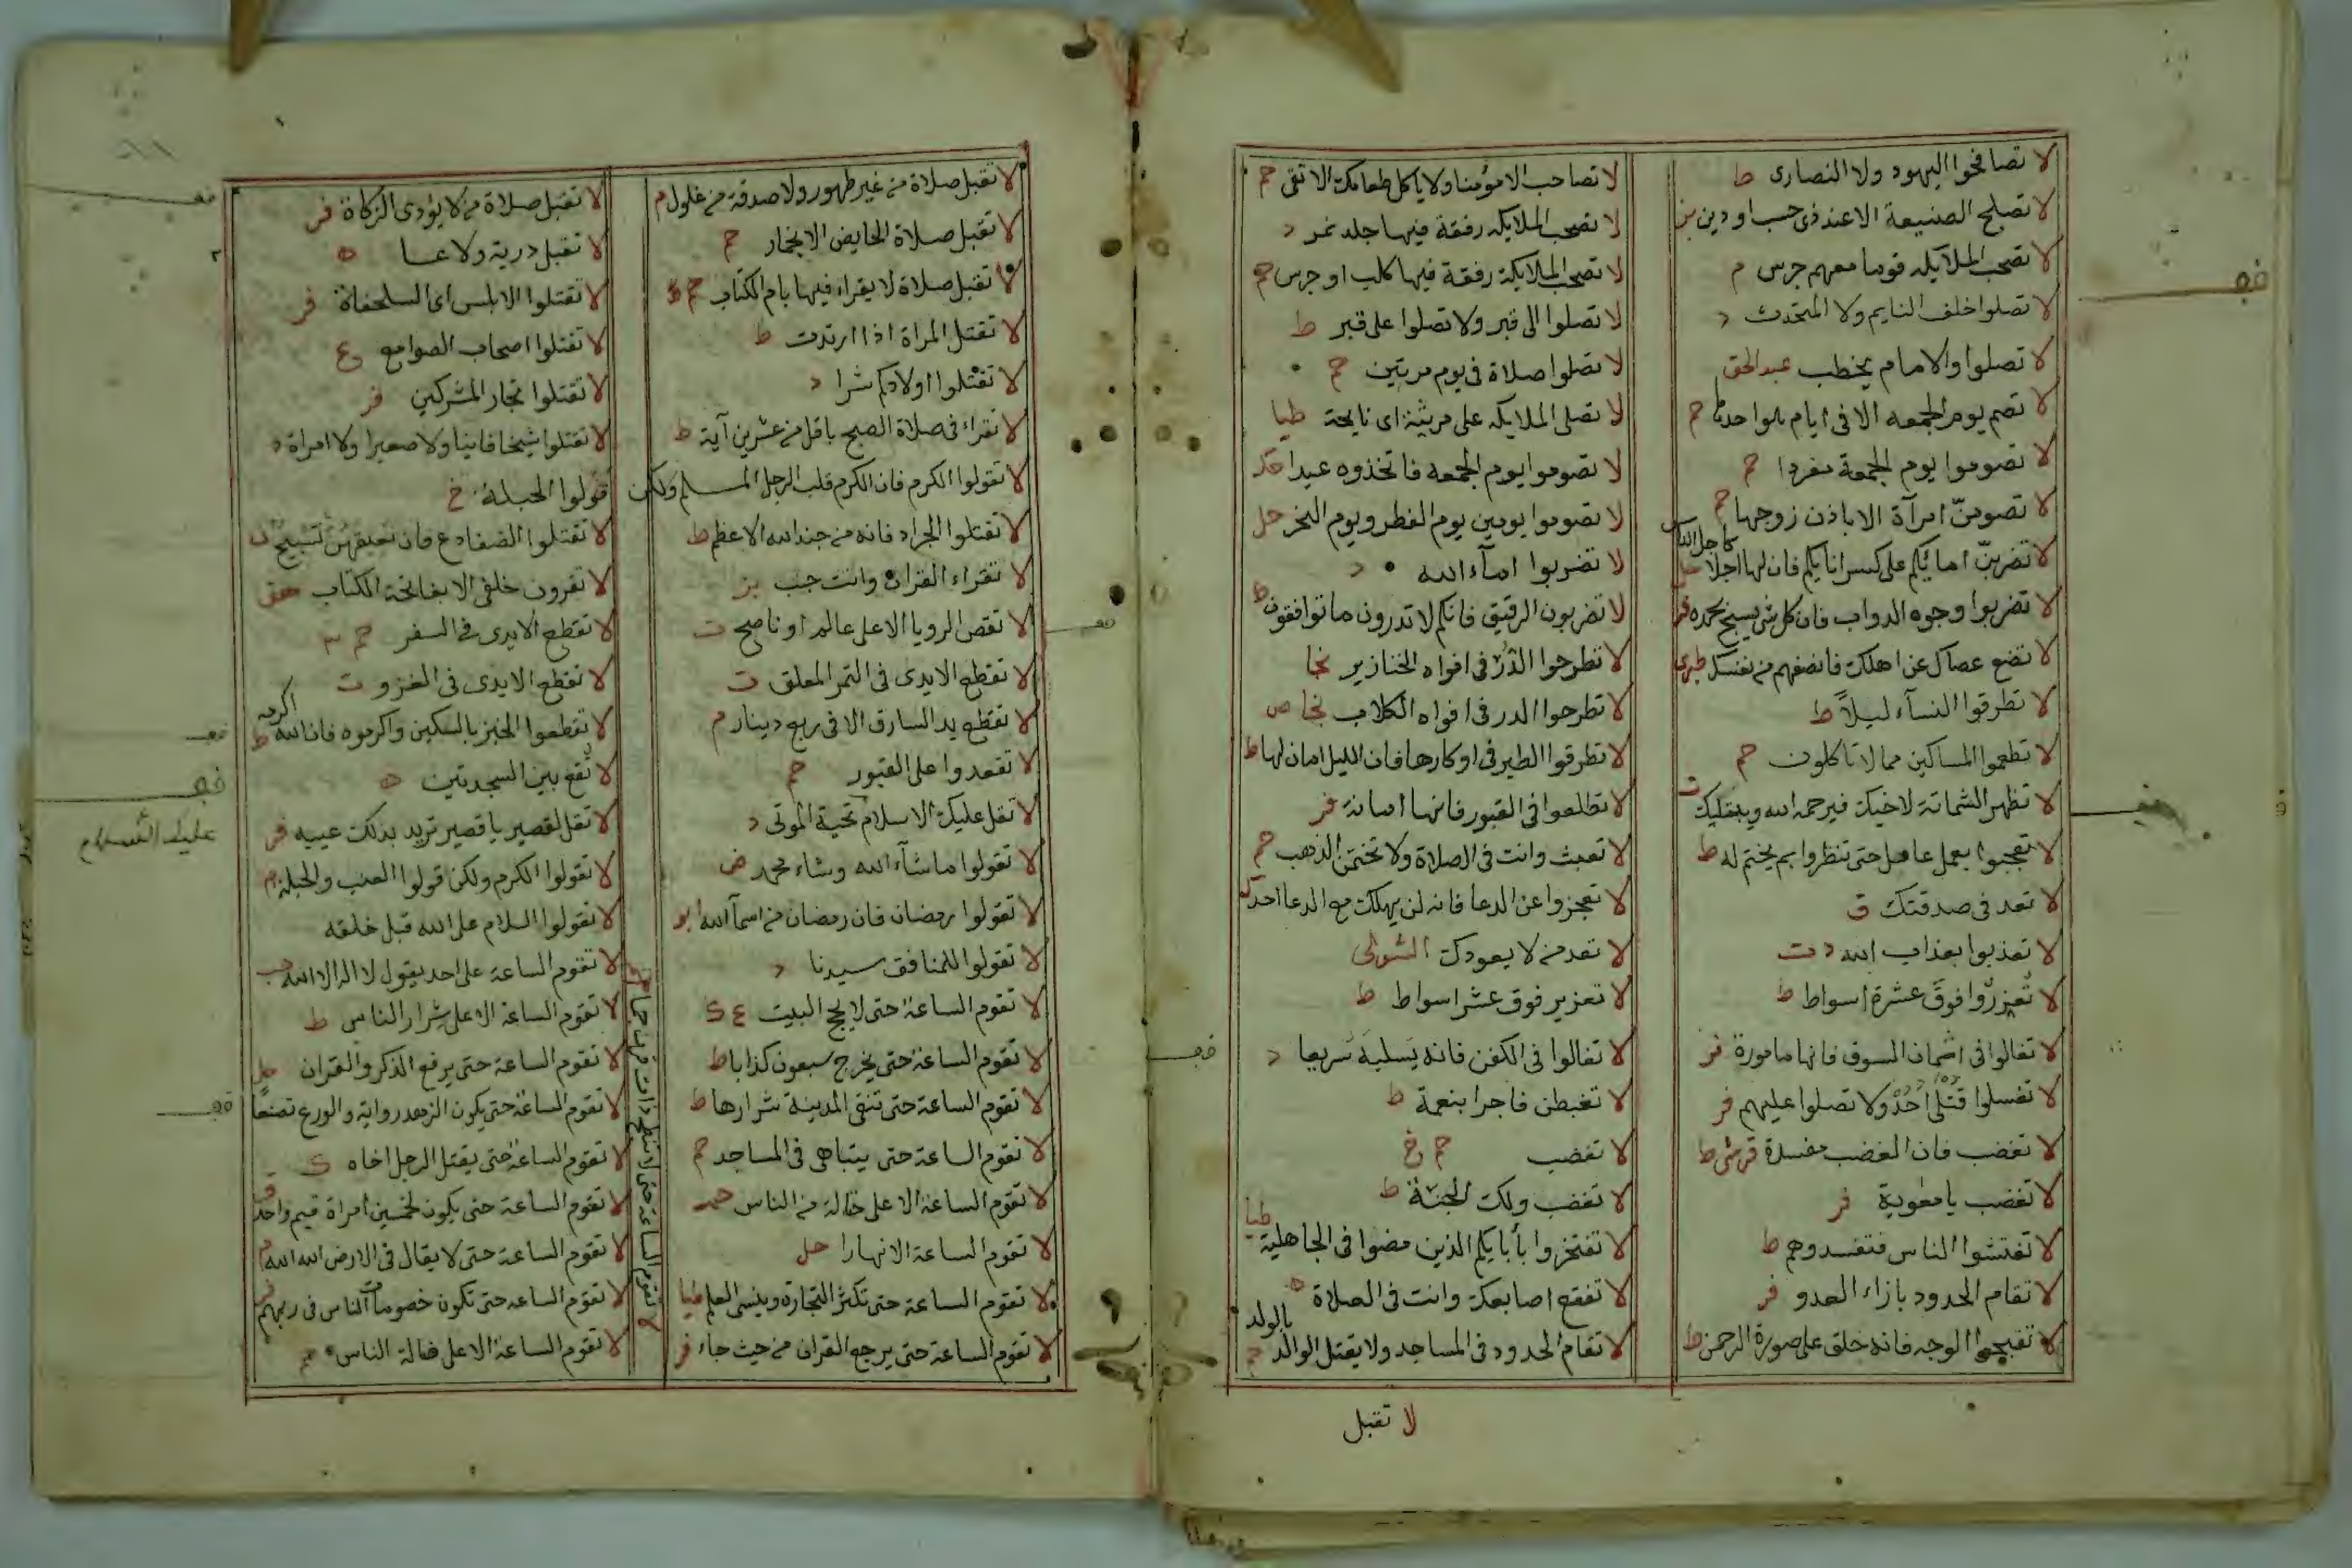 لا تصافحوا اليهود ولا النصارى ط
لا تصلح الصنيعة الا عند ذى حسب او دين بز
لا تصحب الملايكه قوما معهم جرس م
لا تصلوا خلف النايم ولا المتحدث د
لا تصلوا والامام يخطب عبد الحق
لا تصم يوم الجمعه الا فى ايام حم
لا تصوموا يوم الجمعة مفردا حم
لا تصومنّ امرآة الا باذن زوجها حم
لا تضربنّ امائكم على كسر انايكم فان لها اجلا كاجل الناس حل
لا تضربوا وجوه الدواب فان كل شى يسبح بحمده فر
لا تضع عصاك عن اهلك فانصفهم من نفسك طبرى
لا تطرقوا النسآء ليلاً ط
لا تطعموا المساكين مما لا تاكلون حم
لا تظهر الشماتة لاخيك فيرحمه الله ويبتليك ت
لا تعجبوا بعمل عامل حتى تنظروا بم يختم له ط
لا تعد فى صدقتك ق
لا تعذبوا بعذاب الله د ت
لا تُعزِّروا فوقَ عشرة اسواط ط
لا تغالوا فى اثمان السوف فانها مامورة فر
لا تغسلوا قتلى احد ولا تصلوا عليهم فر
لا تغضب فان الغضب مفسدة ط
لا تغضب يا معوية فر
لا تفتشوا الناس فتفسدوهم ط
لا تقام الحدود بازاء العدو فر
لا تقبحوا الوجه فانه خلق على صورة الرحمن ط
لا تصاحب الا مؤمنا ولا ياكل طعامك الا تقى حم
لا تصحب الملايكه رفقة فيها جلد نمر د
لا تصحب الملايكة رفقة فيها كلب او جرس حم
لا تصلوا الى قبر ولا تصلوا على قبر ط
لا تصلوا صلاة فى يوم مرتين حم
لا تصلى الملايكه على مرثية اى نايحة طيا
لا تصوموا يوم الجمعه فاتخذوه عيدا
لا تصوموا يومين يوم الفطر ويوم النحر حل
لا تضربوا امآء الله د
لا تضربون الرقيق فانكم لا تدرون ما توافقون ط
لا تطرحوا الدُّرّ فى افواه الخنازير نجا
لا تطرحوا الدر فى افواه الكلاب نجا ص
لا تطرقوا الطير فى اوكارها فان الليل امان لها ط
لا تطلعوا فى القبور فانها امانة فر
لا تعبث وانت فى الصلاة ولا تختمن الذهب حم
لا تعجزوا عن الدعا فانه لن يهلك مع الدعا احد ك
لا تعد من لا يعودك
لا تعزير فوق عشر اسواط ط
لا تغالوا فى الكفن فانه يَسلبه سَريعا د
لا تغبطن فاجرا بنعمة ط
لا تغضب حم خ
لا تغضب ولك الجنة ط
لا تفتخروا بأبايكم الذين مضوا فى الجاهلية طيا
لا تفقع اصابعك وانت فى الصلاة ه
لا تقام الحدود فى المساجد ولا يقتل الوالد بالولد حم
لا تقبل
لا تقبل صلاة من غير طهور ولا صدقة من غلول م
لا تقبل صلاة الحايض الا بخمار حم
لا تقبل صلاة لا يقراء فيها بام الكتاب حم
لا تقتل المراة اذا ارتدت ط
لا تقتلوا اولادكم شرا د
لا تقراء فى صلاة الصبح باقل من عشرين آية ط
لا تقولوا الكرم فان الكرم قلب الرجل المسلم ولكن
لا تقتلوا الجراد فانه من جند الله الاعظم ط
لا تقراء القران وانت جنب بز
لا تقص الرويا الا على عالم او ناصح ت
لا تقطع الايدى فى الثمر المعلق ت
لا تقطع يد السارق الا فى ربع دينار م
لا تقعدوا على القبور حم
لا تقل عليك الاسلام تحية الموتى د
لا تقولوا ما شآء الله وشاء محمد ض
لا تقولوا رمضان فان رمضان من اسمآ الله ابو
لا تقولوا للمنافق سيدنا د
لا تقوم الساعة حتى لا يحج البيت ع ك
لا تقوم الساعة حتى يخرج سبعون كذابا ط
لا تقوم الساعة حتى تنقى المدينة شرارها ط
لا تقوم الساعة حتى يتباهى فى المساجد حم
لا تقوم الساعة الا على حثالة من الناس حم
لا تقوم الساعة الا نهارا حل
لا تقوم الساعة حتى تكثر التجارة وينسى العلم طيا
لا تقوم الساعة حتى يرجع القران من حيث جاء فر
لا تقوم الساعة حتى لا تنطح ذات قرن جما
لا تقبل صلاة من لا يؤدى الزكاة فر
لا تقبل درية ولا عسا ه
لا تقتلوا الابلس اى السلحفاة فر
لا تقتلوا اصحاب الصوامع ع
لا تقتلوا تجار المشركين فر
لا تقتلوا شيخا فانيا ولا صغيرا ولا امراة د
قولوا الحبلة خ
لا تقتلوا الضفادع فان نعيقهن تسبيح ن
لا تقرون خلفى الا بفاتحة الكتاب هق
لا تقطع الايدى فى السفر حم ٣
لا تقطع الايدى فى الغزو ت
لا تقطعوا الخبز بالسكين واكرموه فان الله اكرمه ط
لا تُقع بين السجدتين ه
لا تقل لقصير يا قصير تريد بذلك عيبه فر
لا تقولوا الكرم ولكن قولوا العنب والحبلة م
لا تقولوا السلام على الله قبل خلقه
لا تقوم الساعة على احد يقول لا اله الا الله حب
لا تقوم الساعة الا على شرار الناس ط
لا تقوم الساعة حتى يرفع الذكر والقران حل
لا تقوم الساعة حتى يكون الزهد رواية والورع تصنعًا
لا تقوم الساعة حتى يقتل الرجل اخاه ك
لا تقوم الساعة حتى يكون لخمسين امراة قيم واحد
لا تقوم الساعة حتى لا يقال فى الارض الله الله م
لا تقوم الساعه حتى تكون خصومات الناس فى ربهم فر
لا تقوم الساعة الا على حثالة الناس حم
قف
قف
عليك السلام